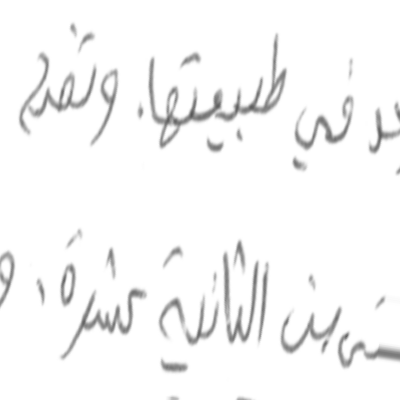 في طبيعتها. وتقدم
سن الثانية عشرة، و